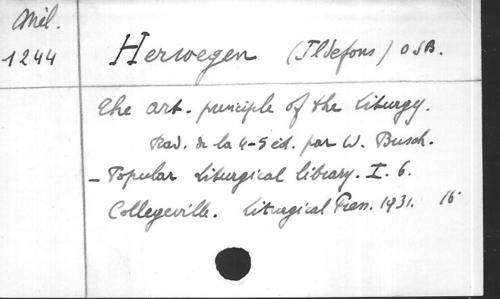 Mél.
1244
Herwegen (Ildefons) OSB.
The art-principle of the Liturgy.
Trad. de la 4-5 éd. par W. Busch.
- Popular Liturgical library. I. 6.
Collegeville. Liturgical Press. 1931. 16°